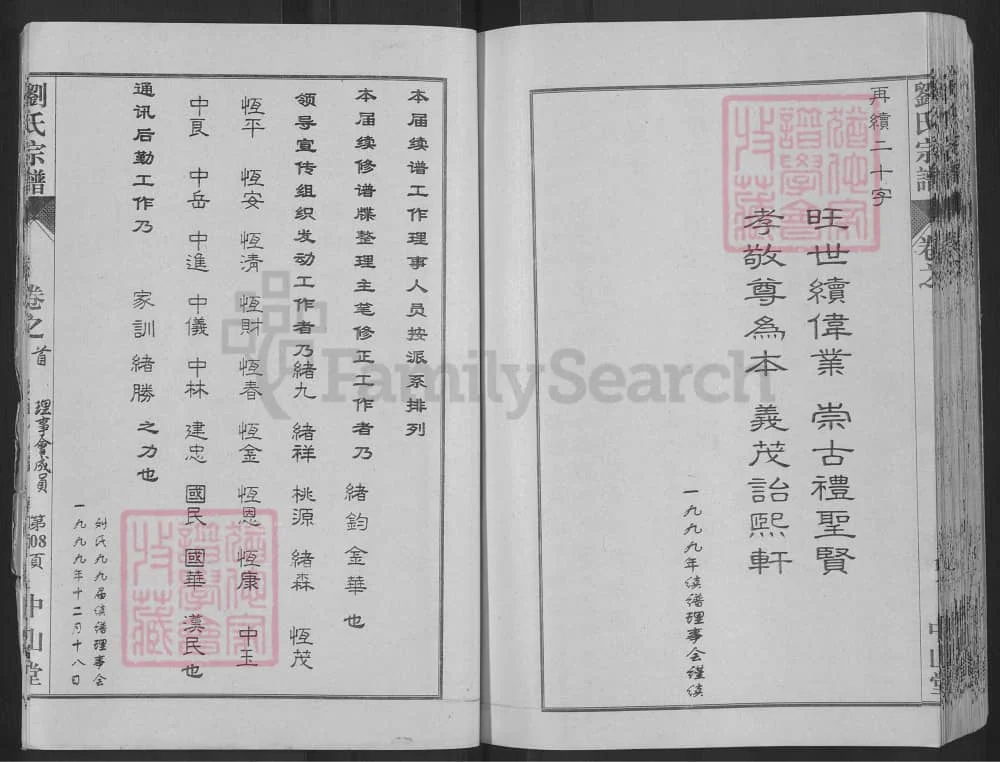 劉氏宗譜
卷之
再續二十字
旺世續偉業 崇古禮聖賢
孝敬尊為本 義茂詒熙軒
一九九九年续谱理事会谨续
本届续谱工作理事人员按派系排列
本届续修谱牒整理主笔修正工作者乃 緒鈞 金華 也
领导宣传组织发动工作者乃緒九 緒祥 桃源 緒森 恆茂
恆平 恆安 恆清 恆財 恆春 恆金 恆恩 恆康 中玉
中良 中岳 中進 中儀 中林 建忠 國民 國華 漢民也
通讯后勤工作乃 家訓 緒勝 之力也
刘氏九九届续谱理事会
一九九九年十二月十八日
劉氏宗譜
卷之首
理事會成員
第08頁
中山堂
譜學會
收藏
譜學會
收藏
FamilySearch